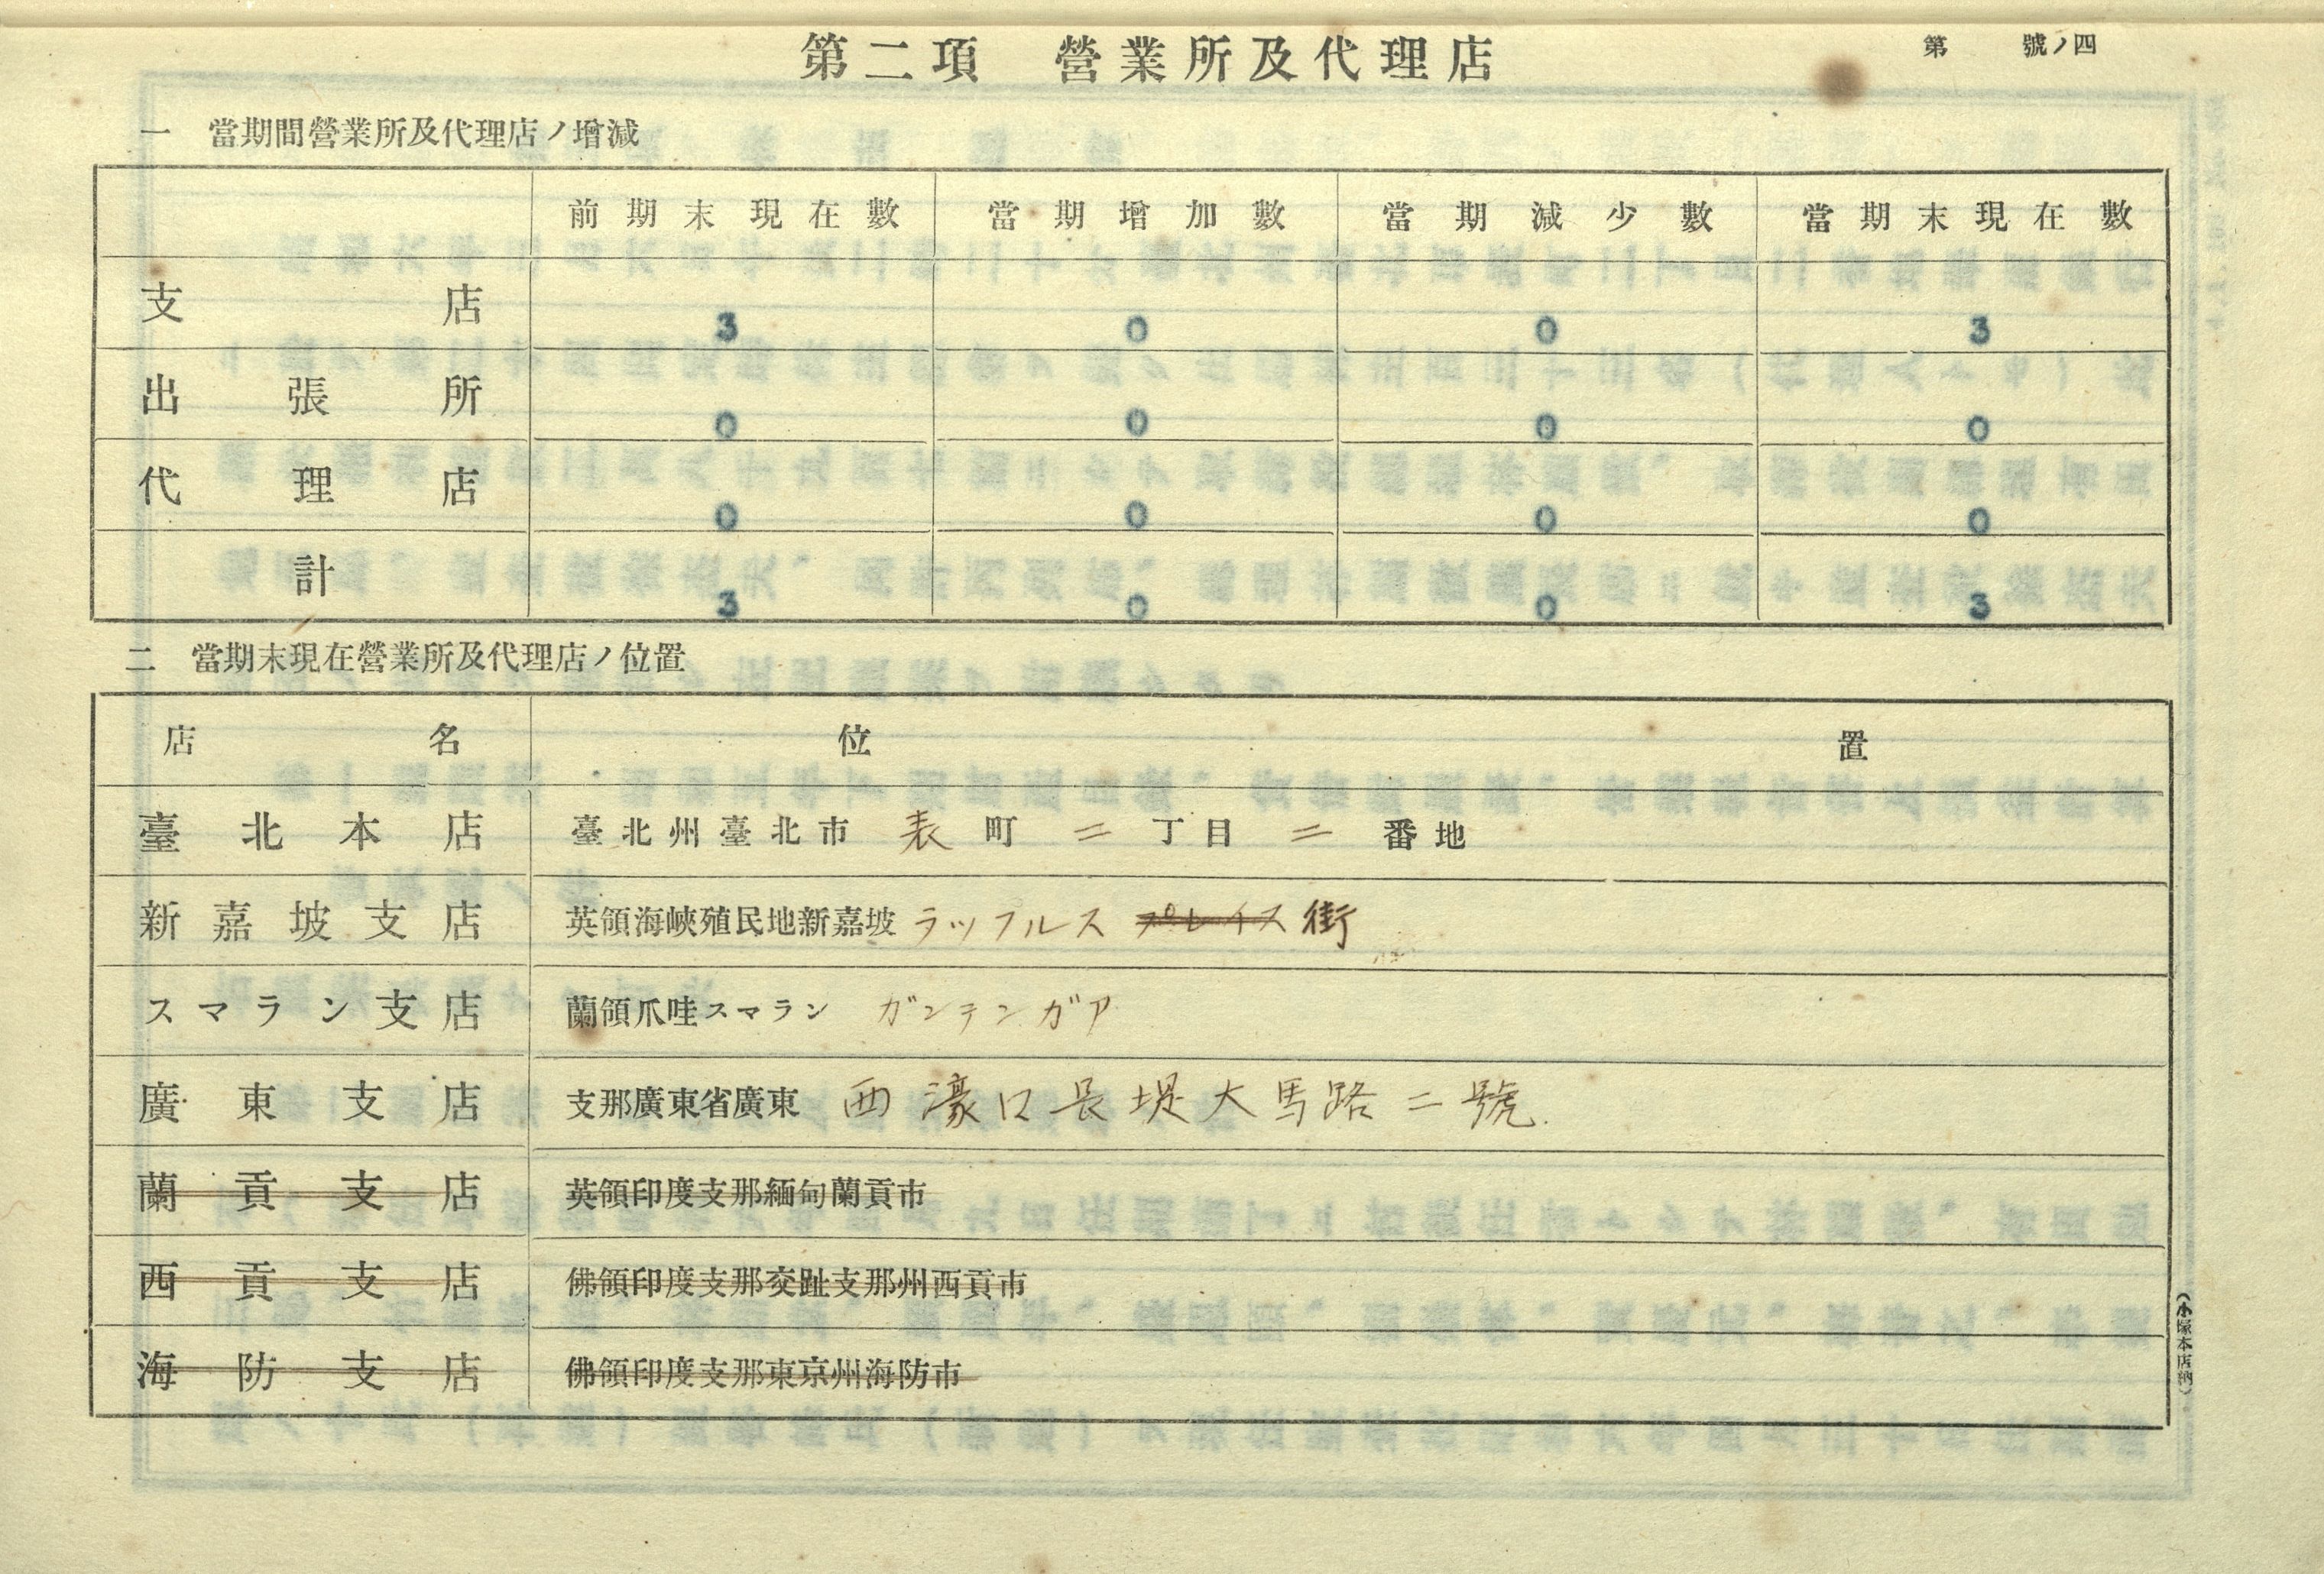 第二項　營業所及代理店
第　號ノ四
一　當期間營業所及代理店ノ增減
前期末現在數　當期增加數　當期減少數　當期末現在數
支店　3　0　0　3
出張所　0　0　0　0
代理店　0　0　0　0
計　3　0　0　3
二　當期末現在營業所及代理店ノ位置
店名　位置
臺北本店　臺北州臺北市　表町　二丁目　二　番地
新嘉坡支店　英領海峽殖民地新嘉坡　ラッフルス　プレイス　街
スマラン支店　蘭領爪哇スマラン　ガンテンガア
廣東支店　支那廣東省廣東　西濠口長堤大馬路二號
蘭貢支店　英領印度支那緬甸蘭貢市
西貢支店　佛領印度支那交趾支那州西貢市
海防支店　佛領印度支那東京州海防市
（小塚本店納）